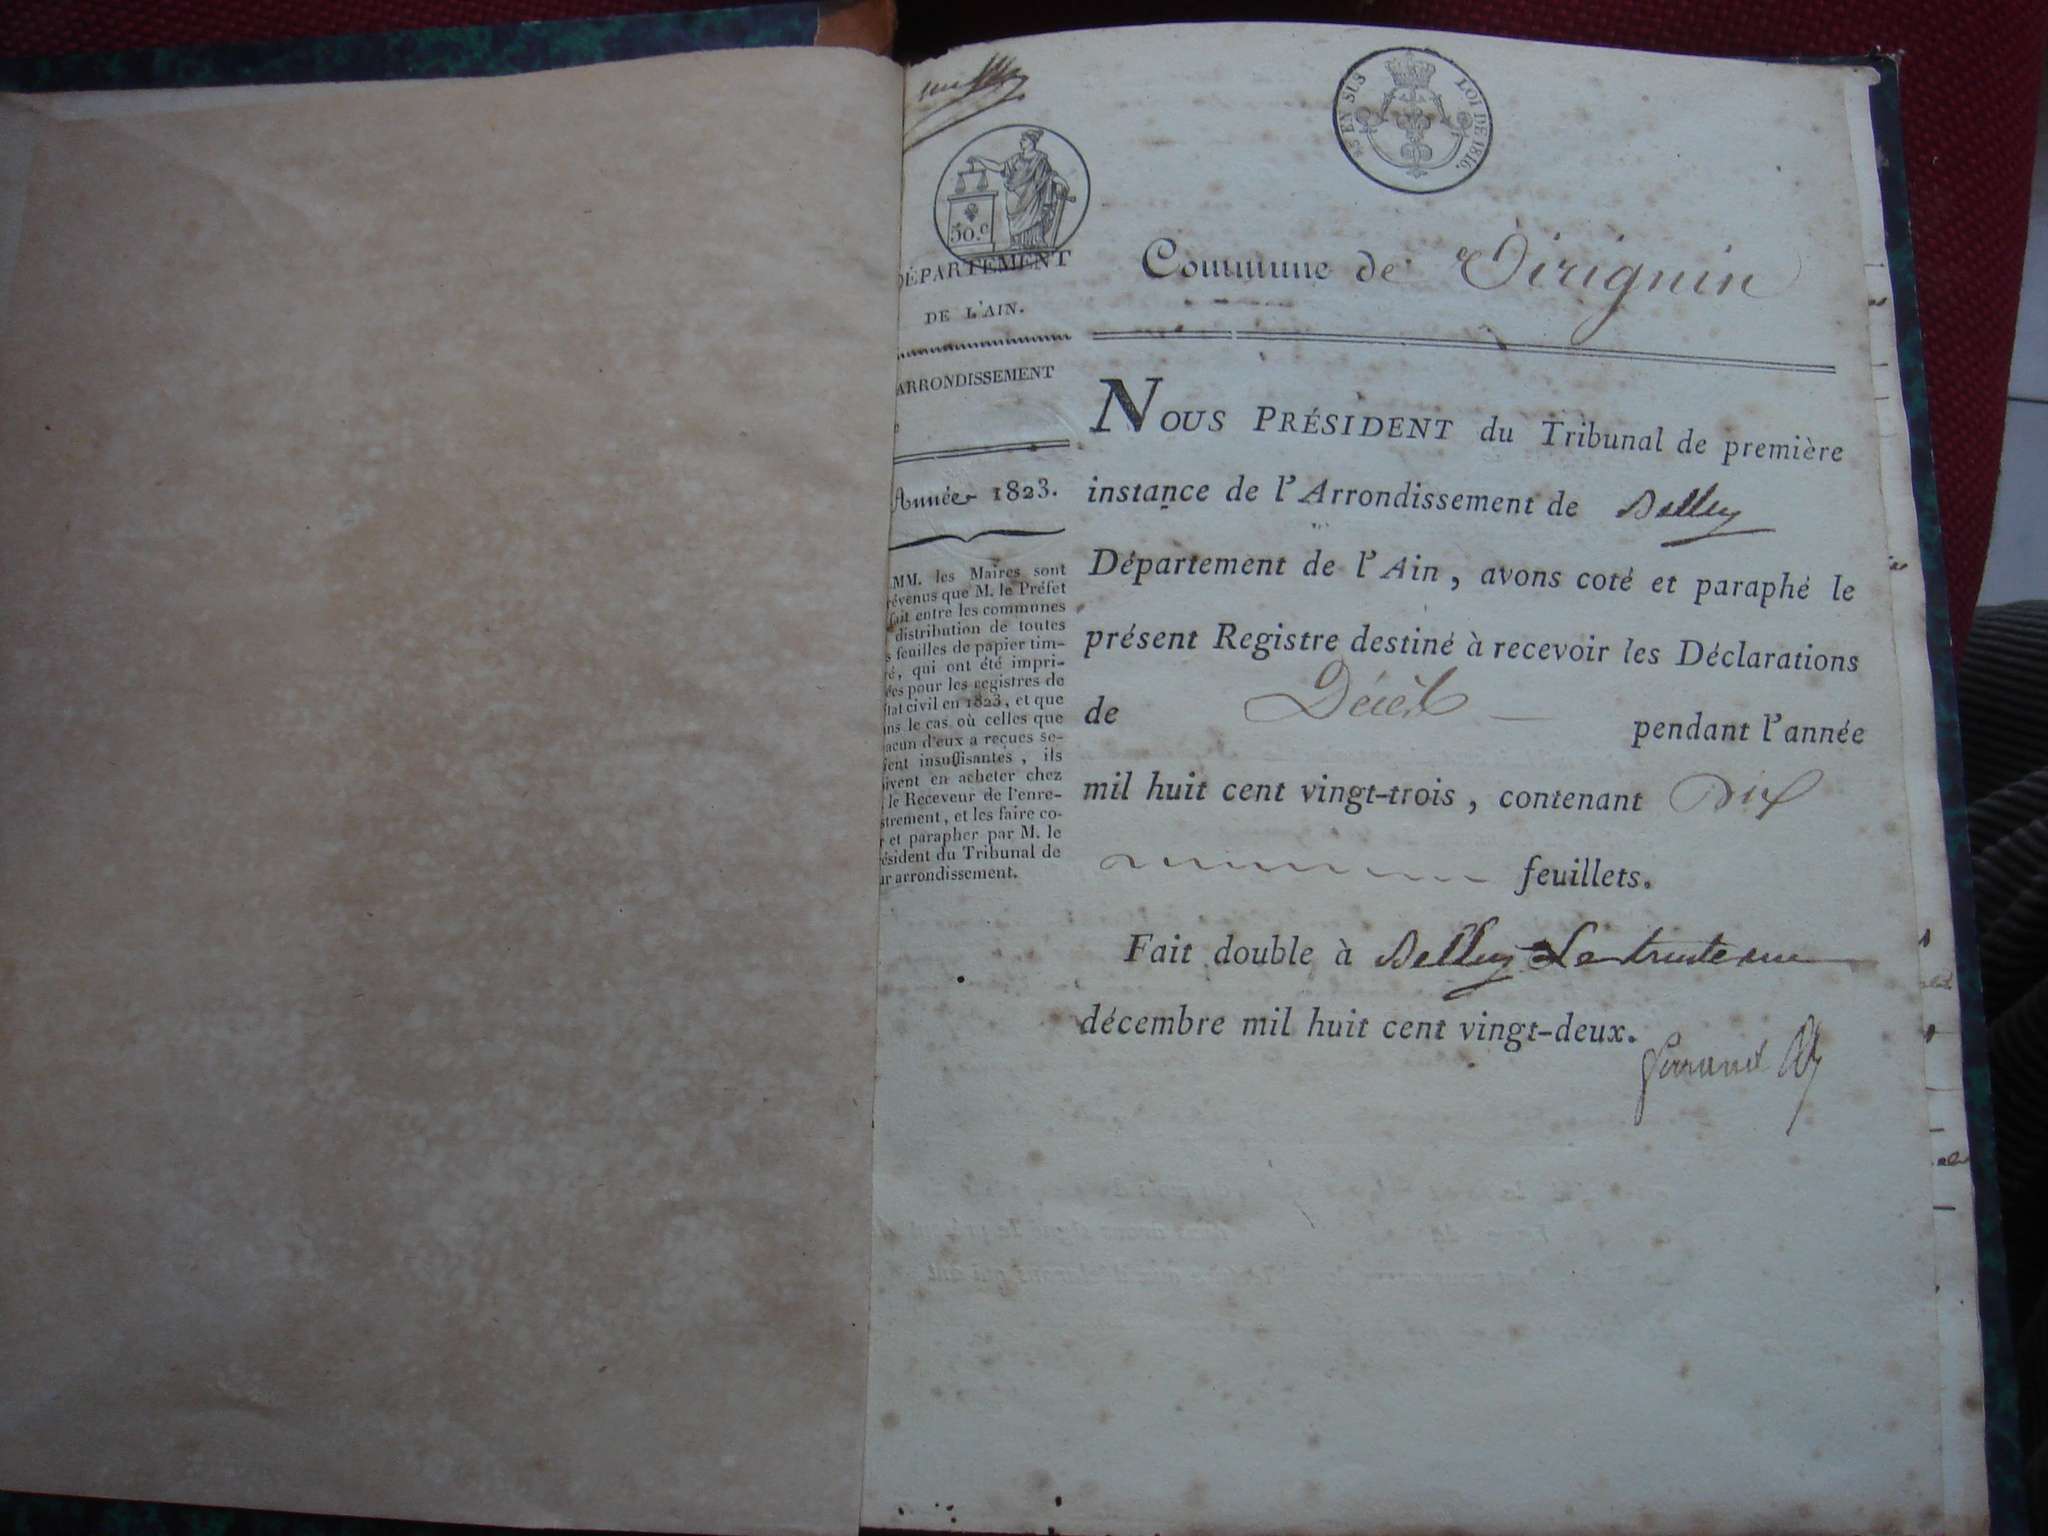 .5 EN SUS LOI DE 1816.
50.c
DÉPARTEMENT
DE L'AIN.
ARRONDISSEMENT
e
Année 1823.
MM. les Maires sont
révenus que M. le Préfet
fait entre les communes
distribution de toutes
s feuilles de papier tim-
ré, qui ont été impri-
ées pour les registres de
état civil en 1823, et que
ans le cas où celles que
acun d'eux a reçues se-
ient insuffisantes, ils
oivent en acheter chez
le Receveur de l'enre-
strement, et les faire co-
r et parapher par M. le
ésident du Tribunal de
ur arrondissement.
Commune de Virignin
NOUS PRÉSIDENT du Tribunal de première
instance de l'Arrondissement de Belley
Département de l'Ain, avons coté et paraphé le
présent Registre destiné à recevoir les Déclarations
de Décès pendant l'année
mil huit cent vingt-trois, contenant Dix
feuillets.
Fait double à Belley Le trente un
décembre mil huit cent vingt-deux.